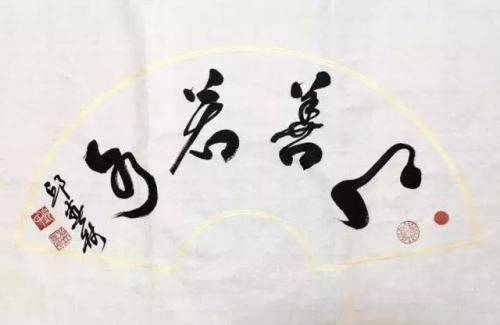 上善若水
邱